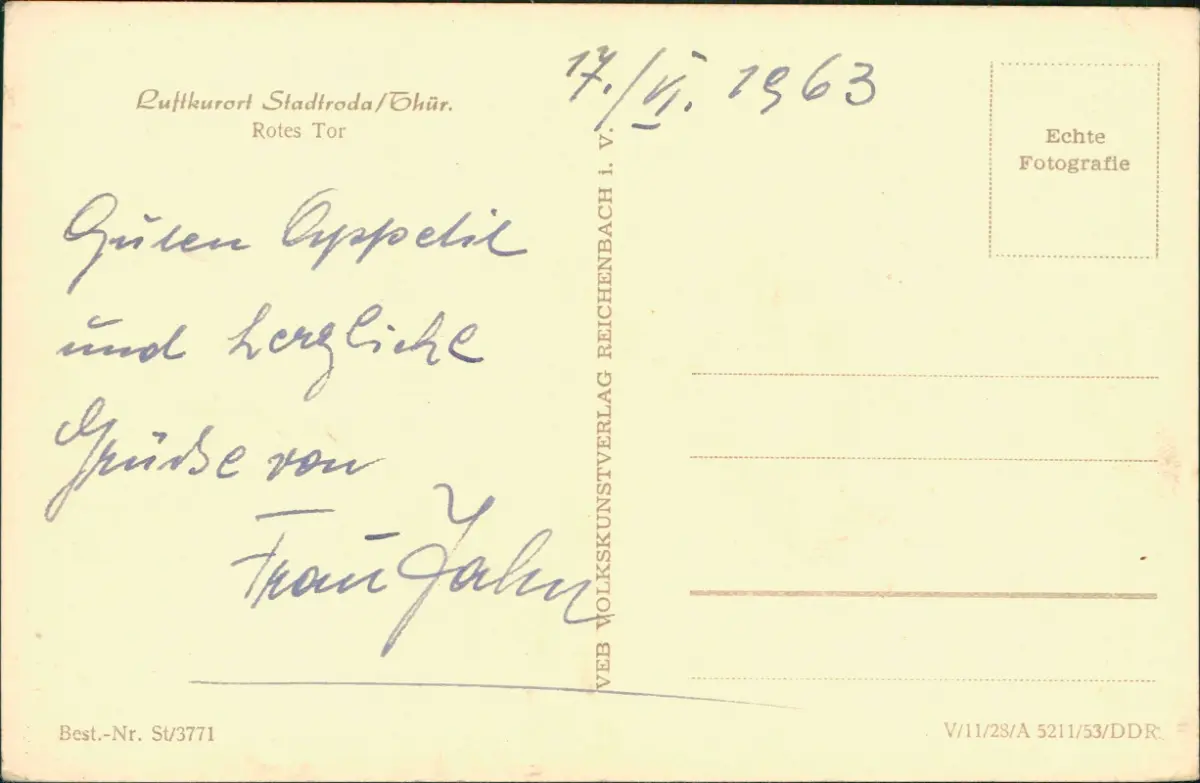 Luftkurort Stadtroda/Thür.
Rotes Tor
17./VI. 1963
Echte
Fotografie
Guten Appetit
und herzliche
Grüße von
Frau Jahn
VEB VOLKSKUNSTVERLAG REICHENBACH i. V.
Best.-Nr. St/3771
V/11/28/A 5211/53/DDR